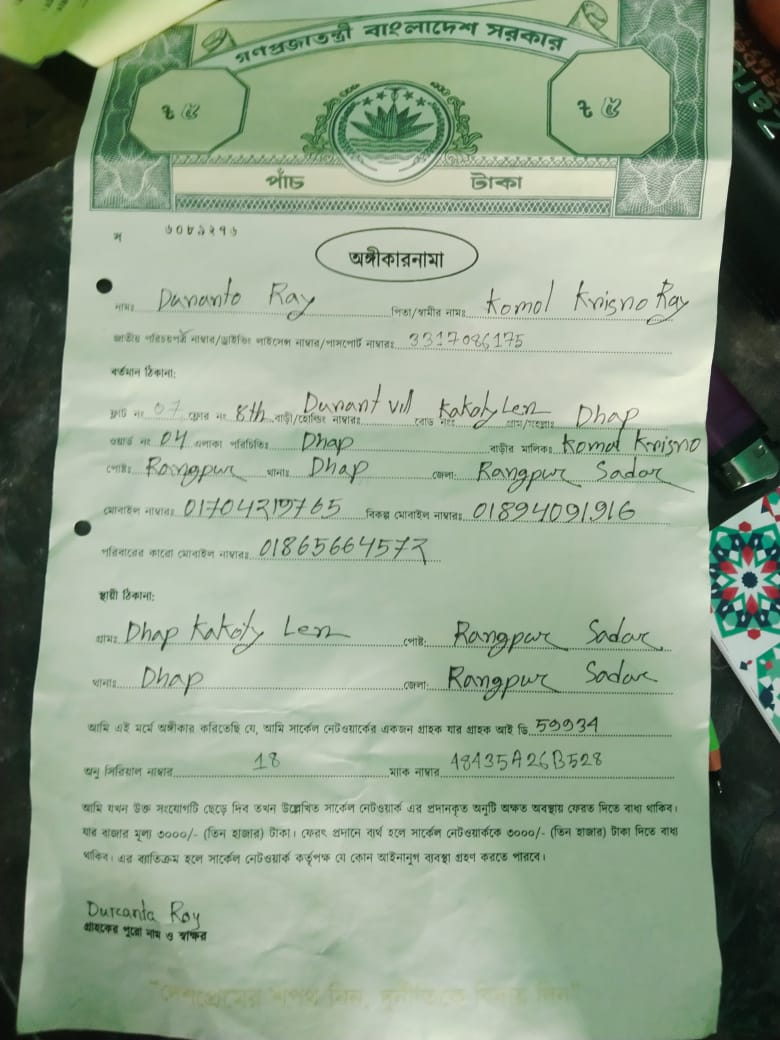 গণপ্রজাতন্ত্রী বাংলাদেশ সরকার
৳ ৫ ৳ ৫
পাঁচ টাকা
স ৬০৮৯২৭৬
অঙ্গীকারনামা
নামঃ Dunanto Ray পিতা/স্বামীর নামঃ Komol Krisno Ray
জাতীয় পরিচয়পত্র নাম্বার/ড্রাইভিং লাইসেন্স নাম্বার/পাসপোর্ট নাম্বারঃ 3317086175
বর্তমান ঠিকানা:
ফ্লাট নং 07 ফ্লোর নং 8th বাড়ী/হোল্ডিং নাম্বারঃ Dunant vill রোড নংঃ Kakoty Len গ্রাম/মহল্লাঃ Dhap
ওয়ার্ড নং 04 এলাকা পরিচিতিঃ Dhap বাড়ীর মালিকঃ Komol Krisno
পোষ্টঃ Rangpur থানাঃ Dhap জেলা: Rangpur Sadar
মোবাইল নাম্বারঃ 01704219765 বিকল্প মোবাইল নাম্বারঃ 01894091916
পরিবারের কারো মোবাইল নাম্বারঃ 01865664572
স্থায়ী ঠিকানা:
গ্রামঃ Dhap Kakoty Len পোষ্ট: Rangpur Sadar
থানাঃ Dhap জেলা: Rangpur Sadar
আমি এই মর্মে অঙ্গীকার করিতেছি যে, আমি সার্কেল নেটওয়ার্কের একজন গ্রাহক যার গ্রাহক আই ডি 59934
অনু সিরিয়াল নাম্বার 18 ম্যাক নাম্বার 48435A26B528
আমি যখন উক্ত সংযোগটি ছেড়ে দিব তখন উল্লেখিত সার্কেল নেটওয়ার্ক এর প্রদানকৃত অনুটি অক্ষত অবস্থায় ফেরত দিতে বাধ্য থাকিব।
যার বাজার মূল্য ৩০০০/- (তিন হাজার) টাকা। ফেরৎ প্রদানে ব্যর্থ হলে সার্কেল নেটওয়ার্ককে ৩০০০/- (তিন হাজার) টাকা দিতে বাধ্য
থাকিব। এর ব্যতিক্রম হলে সার্কেল নেটওয়ার্ক কর্তৃপক্ষ যে কোন আইনানুগ ব্যবস্থা গ্রহণ করতে পারবে।
Durcanta Roy
গ্রাহকের পুরো নাম ও স্বাক্ষর
"দেশপ্রেমের শপথ নিন, দুর্নীতিকে বিদায় দিন"